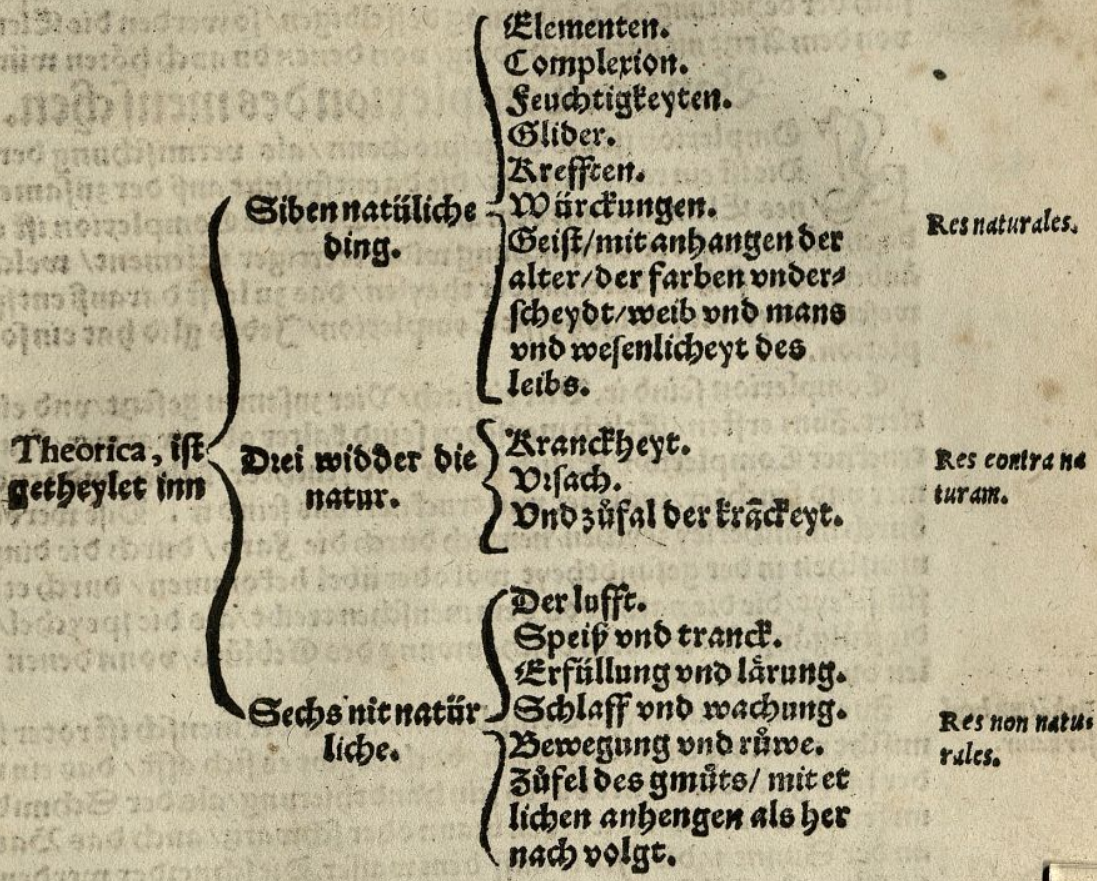 Theorica, iſt
getheylet inn
Siben natüliche
ding.
Elementen.
Complexion.
Feuchtigkeyten.
Glider.
Krefften.
Würckungen.
Geiſt/mit anhangen der
alter/der farben vnder⸗
ſcheydt/weib vnd mans
vnd weſenlicheyt des
leibs.
Res naturales.
Drei widder die
natur.
Kranckheyt.
Vrſach.
Vnd zůfal der krãckeyt.
Res contra na
turam.
Sechs nit natür
liche.
Der lufft.
Speiß vnd tranck.
Erfüllung vnd lårung.
Schlaff vnd wachung.
Bewegung vnd růwe.
Zůfel des gmůts/ mit et
lichen anhengen als her
nach volgt.
Res non natu⸗
rales.